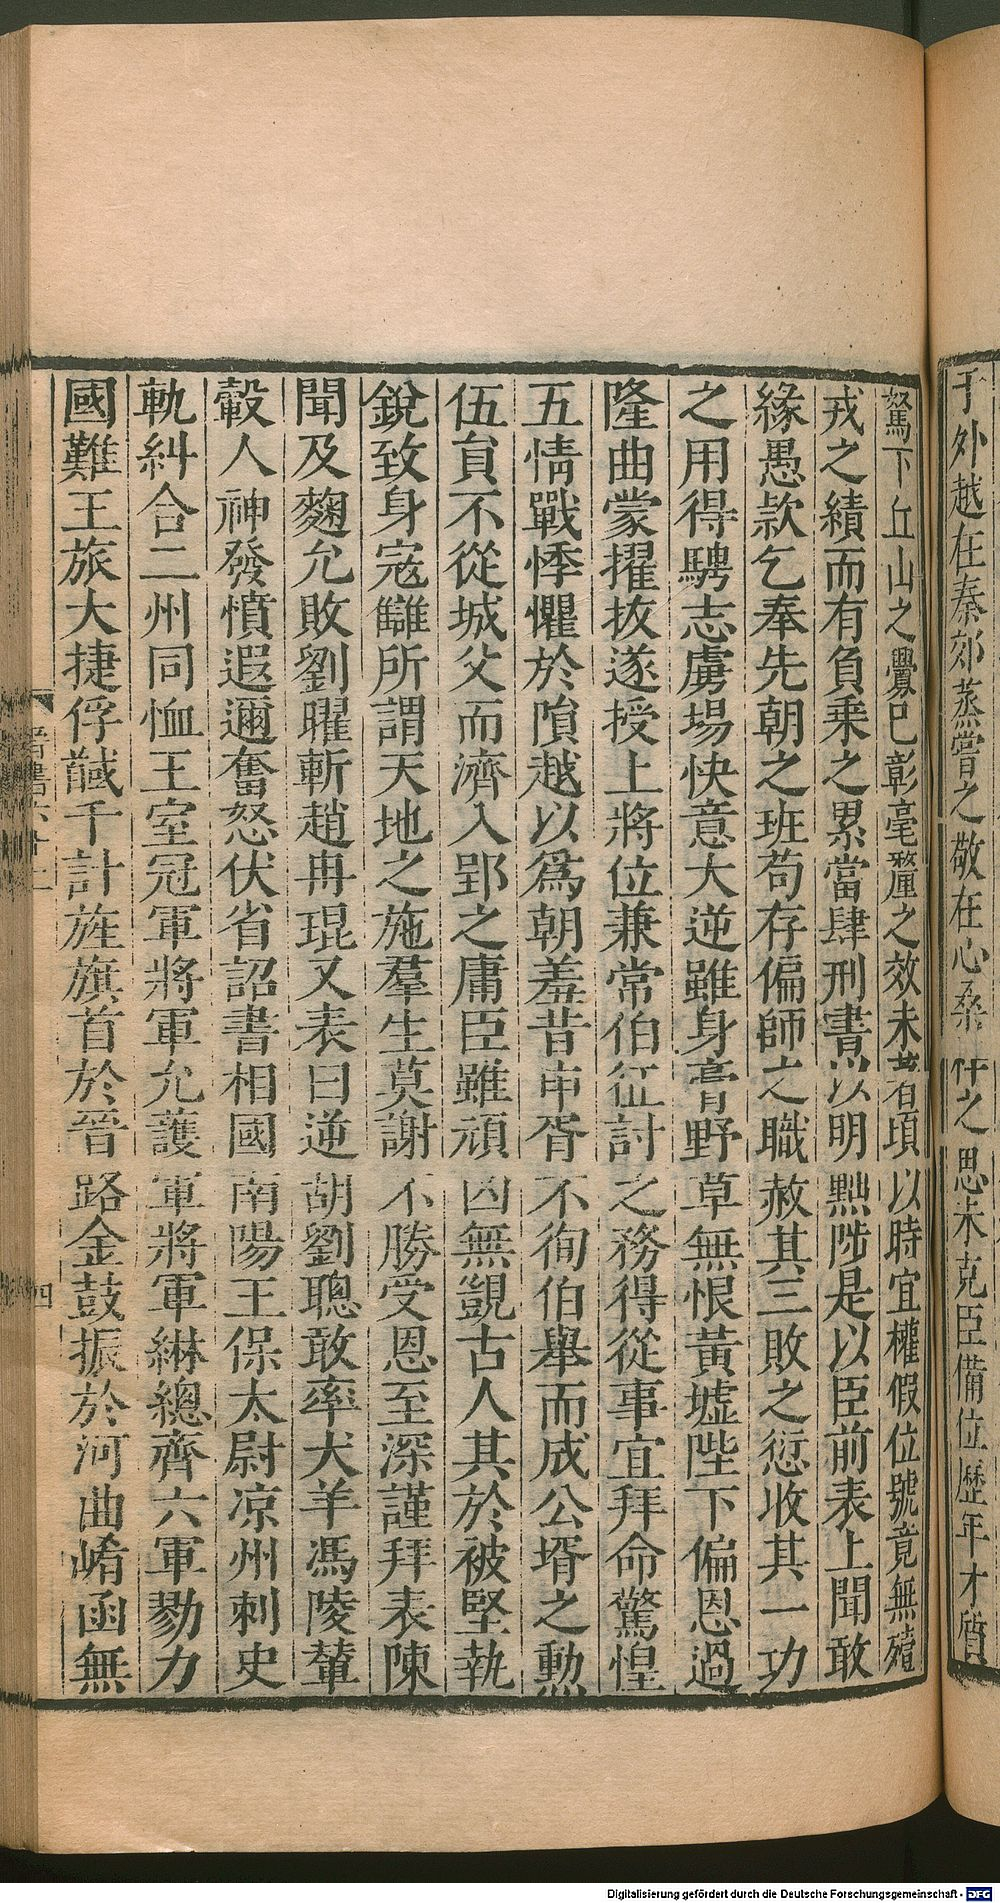 于外越在秦郊蒸嘗之敬在心桑 之思未克臣備位歷年才質
駑下丘山之釁已彰毫釐之效未著頃以時宜權假位號竟無殪
戎之績而有負乗之累當肆刑書以明黜陟是以臣前表上聞敢
緣愚款乞奉先朝之班苟存偏師之職赦其三敗之愆收其一功
之用得騁志虜場快意大逆雖身膏野草無恨黃墟陛下偏恩過
隆曲蒙擢拔遂授上將位兼常伯征討之務得從事宜拜命驚惶
五情戰悸懼於隕越以爲朝羞昔申胥不徇伯舉而成公壻之勳
伍貟不從城父而濟入郢之庸臣雖頑凶無覬古人其於被堅執
銳致身寇讎所謂天地之施羣生莫謝不勝受恩至深謹拜表陳
聞及麴允敗劉曜斬趙冉琨又表曰逆胡劉聰敢率犬羊馮陵輦
轂人神發憤遐邇奮怒伏省詔書相國南陽王保太尉凉州刺史
軌糾合二州同恤王室冠軍將軍允護軍將軍綝總齊六軍勠力
國難王旅大捷俘馘千計旌旗首於晉路金鼓振於河曲崤函無
晉書六十二
四
Digitalisierung gefördert durch die Deutsche Forschungsgemeinschaft - DFG